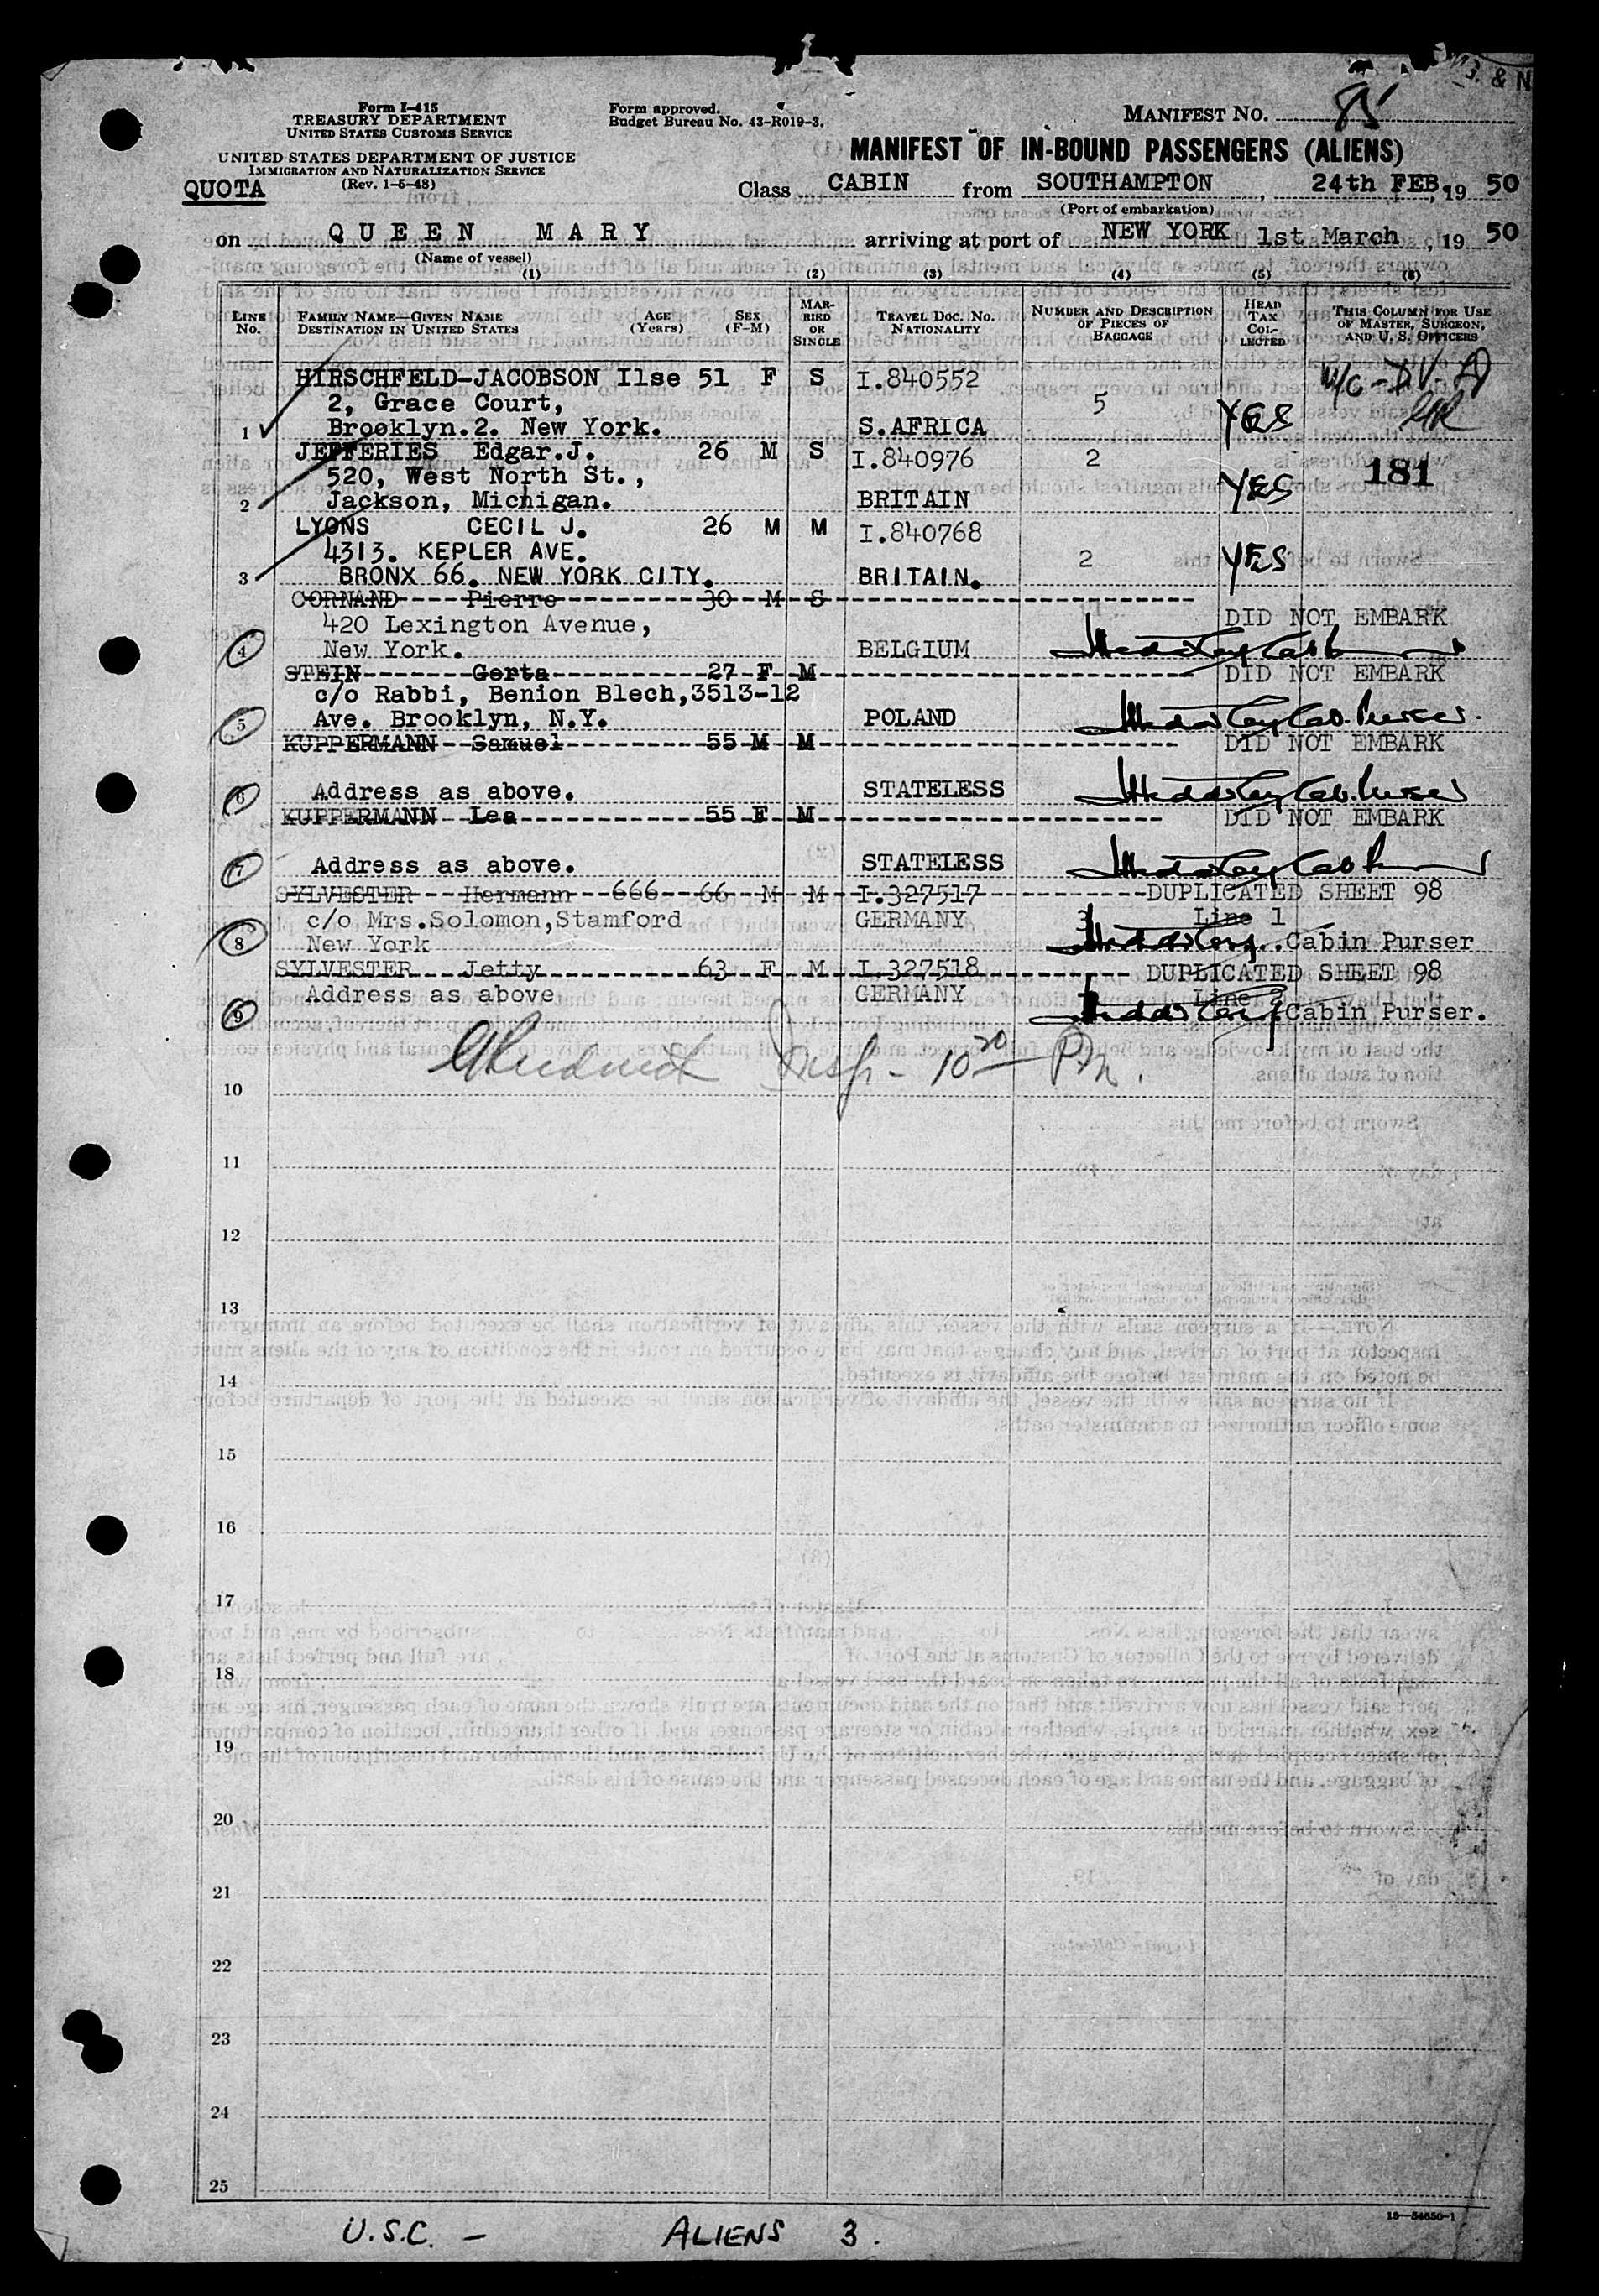 Form I-415
TREASURY DEPARTMENT
UNITED STATES CUSTOMS SERVICE
UNITED STATES DEPARTMENT OF JUSTICE
IMMIGRATION AND NATURALIZATION SERVICE
(Rev. 1-5-48)
QUOTA
Form approved.
Budget Bureau No. 43-R019-3.
MANIFEST NO.
& N
MANIFEST OF IN-BOUND PASSENGERS (ALIENS)
Class CABIN from SOUTHAMPTON, 24th FEB, 19 50
(Port of embarkation)
on QUEEN MARY arriving at port of NEW YORK 1st March, 19 50
(Name of vessel)
(1) (2) (3) (4) (5) (6)
LINE No. FAMILY NAME—GIVEN NAME DESTINATION IN UNITED STATES AGE (Years) SEX (F-M) MARRIED OR SINGLE TRAVEL DOC. NO. NATIONALITY NUMBER AND DESCRIPTION OF PIECES OF BAGGAGE HEAD TAX COLLECTED THIS COLUMN FOR USE OF MASTER, SURGEON, AND U. S. OFFICERS
HIRSCHFELD-JACOBSON Ilse 51 F S I.840552
2, Grace Court, 5
1 Brooklyn.2. New York. S.AFRICA YES
JEFFERIES Edgar.J. 26 M S I.840976 2 181
520, West North St.,
2 Jackson, Michigan. BRITAIN YES
LYONS CECIL J. 26 M M I.840768
4313. KEPLER AVE. 2 YES
3 BRONX 66. NEW YORK CITY. BRITAIN.
CORNAND Pierre 30 M S
420 Lexington Avenue, DID NOT EMBARK
4 New York. BELGIUM
STEIN Gerta 27 F M DID NOT EMBARK
c/o Rabbi, Benion Blech,3513-12
5 Ave. Brooklyn, N.Y. POLAND
KUPPERMANN Samuel 55 M M DID NOT EMBARK
6 Address as above. STATELESS
KUPPERMANN Lea 55 F M DID NOT EMBARK
7 Address as above. STATELESS
SYLVESTER Hermann 666 66 M M I.327517 DUPLICATED SHEET 98
c/o Mrs.Solomon,Stamford GERMANY 3 Line 1
8 New York Cabin Purser
SYLVESTER Jetty 63 F M I.327518 DUPLICATED SHEET 98
Address as above GERMANY Line 2
9 Cabin Purser.
Insp - 10 20 Pm.
10
11
12
13
14
15
16
17
18
19
20
21
22
23
24
25
16—54650-1
U.S.C. - ALIENS 3.